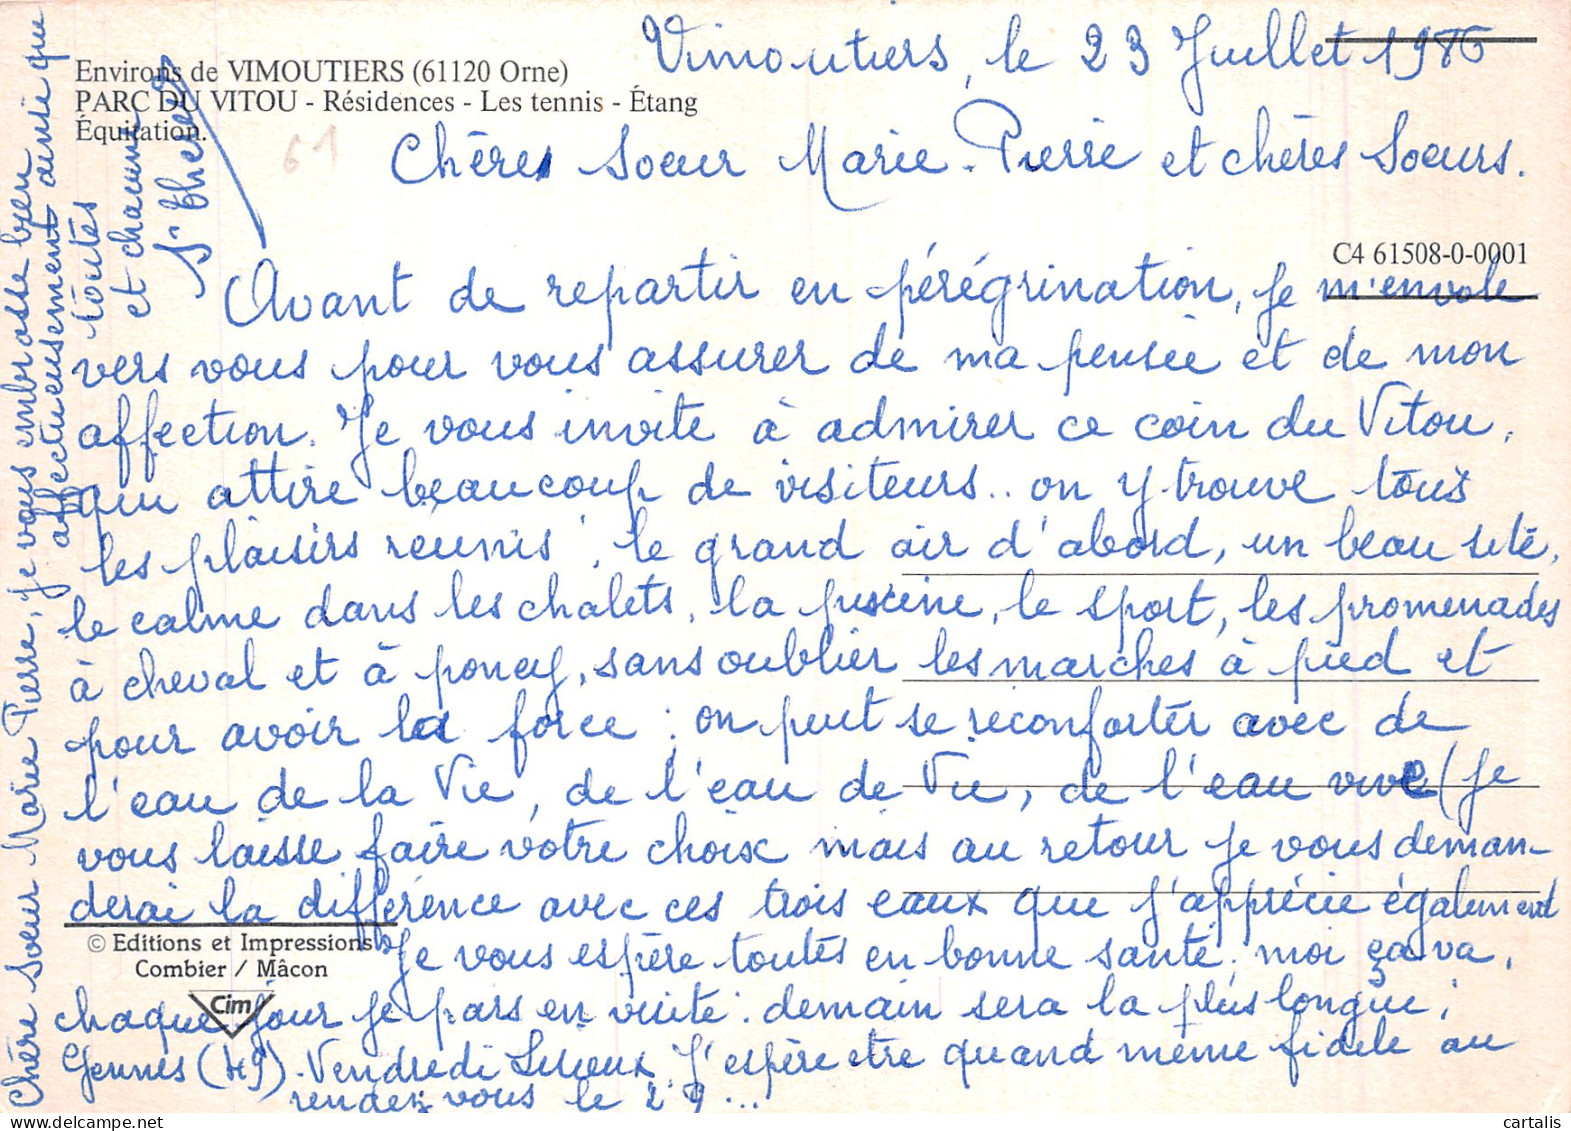 Vimoutiers, le 23 Juillet 1986
Environs de VIMOUTIERS (61120 Orne)
PARC DU VITOU - Résidences - Les tennis - Étang
Équitation.
61
Chères Soeur Marie-Pierre et chères Soeurs.
C4 61508-0-0001
Avant de repartir en pérégrination, je m'envole
vers vous pour vous assurer de ma pensée et de mon
affection. Je vous invite à admirer ce coin du Vitou,
qui attire beaucoup de visiteurs.. on y trouve tous
les plaisirs réunis, le grand air d'abord, un beau site,
le calme dans les chalets, la piscine, le sport, les promenades
à cheval et à poney, sans oublier les marches à pied et
pour avoir la force : on peut se réconforter avec de
l'eau de la Vie, de l'eau de Vie, de l'eau vive (je
vous laisse faire votre choix mais au retour je vous deman-
derai la différence avec ces trois eaux que j'apprécie également
© Editions et Impressions
Combier / Mâcon
Cim
Je vous espère toutes en bonne santé; moi ça va,
chaque jour je pars en visite : demain sera la plus longue;
Gennes (49). Vendredi Lisieux. J'espère être quand même fidèle au
rendez vous le 29...
Chère Soeur Marie Pierre, je vous embrasse bien
affectueusement ainsi que
toutes
et chacune
Sr Thérèse
cartalis